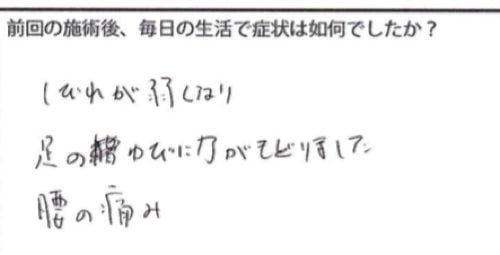 前回の施術後、毎日の生活で症状は如何でしたか？
しびれが弱くなり
足の ゆびに力がもどりました
腰の痛み